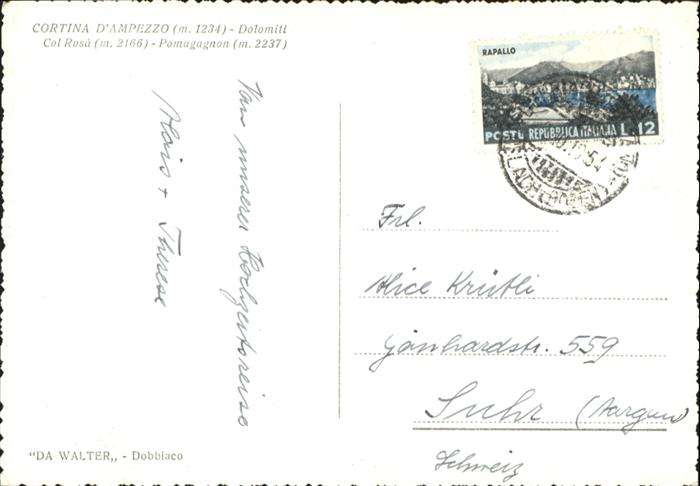 CORTINA D'AMPEZZO (m. 1234) - Dolomiti
Col Rosà (m. 2166) - Pomagagnon (m. 2237)
Von unserer Hochzeitsreise
Alois + Therese
RAPALLO
POSTE REPUBBLICA ITALIANA L.12
54
Frl.
Alice Kristli
Gönhardstr. 559
Suhr (Aargau)
Schweiz
"DA WALTER„ - Dobbiaco